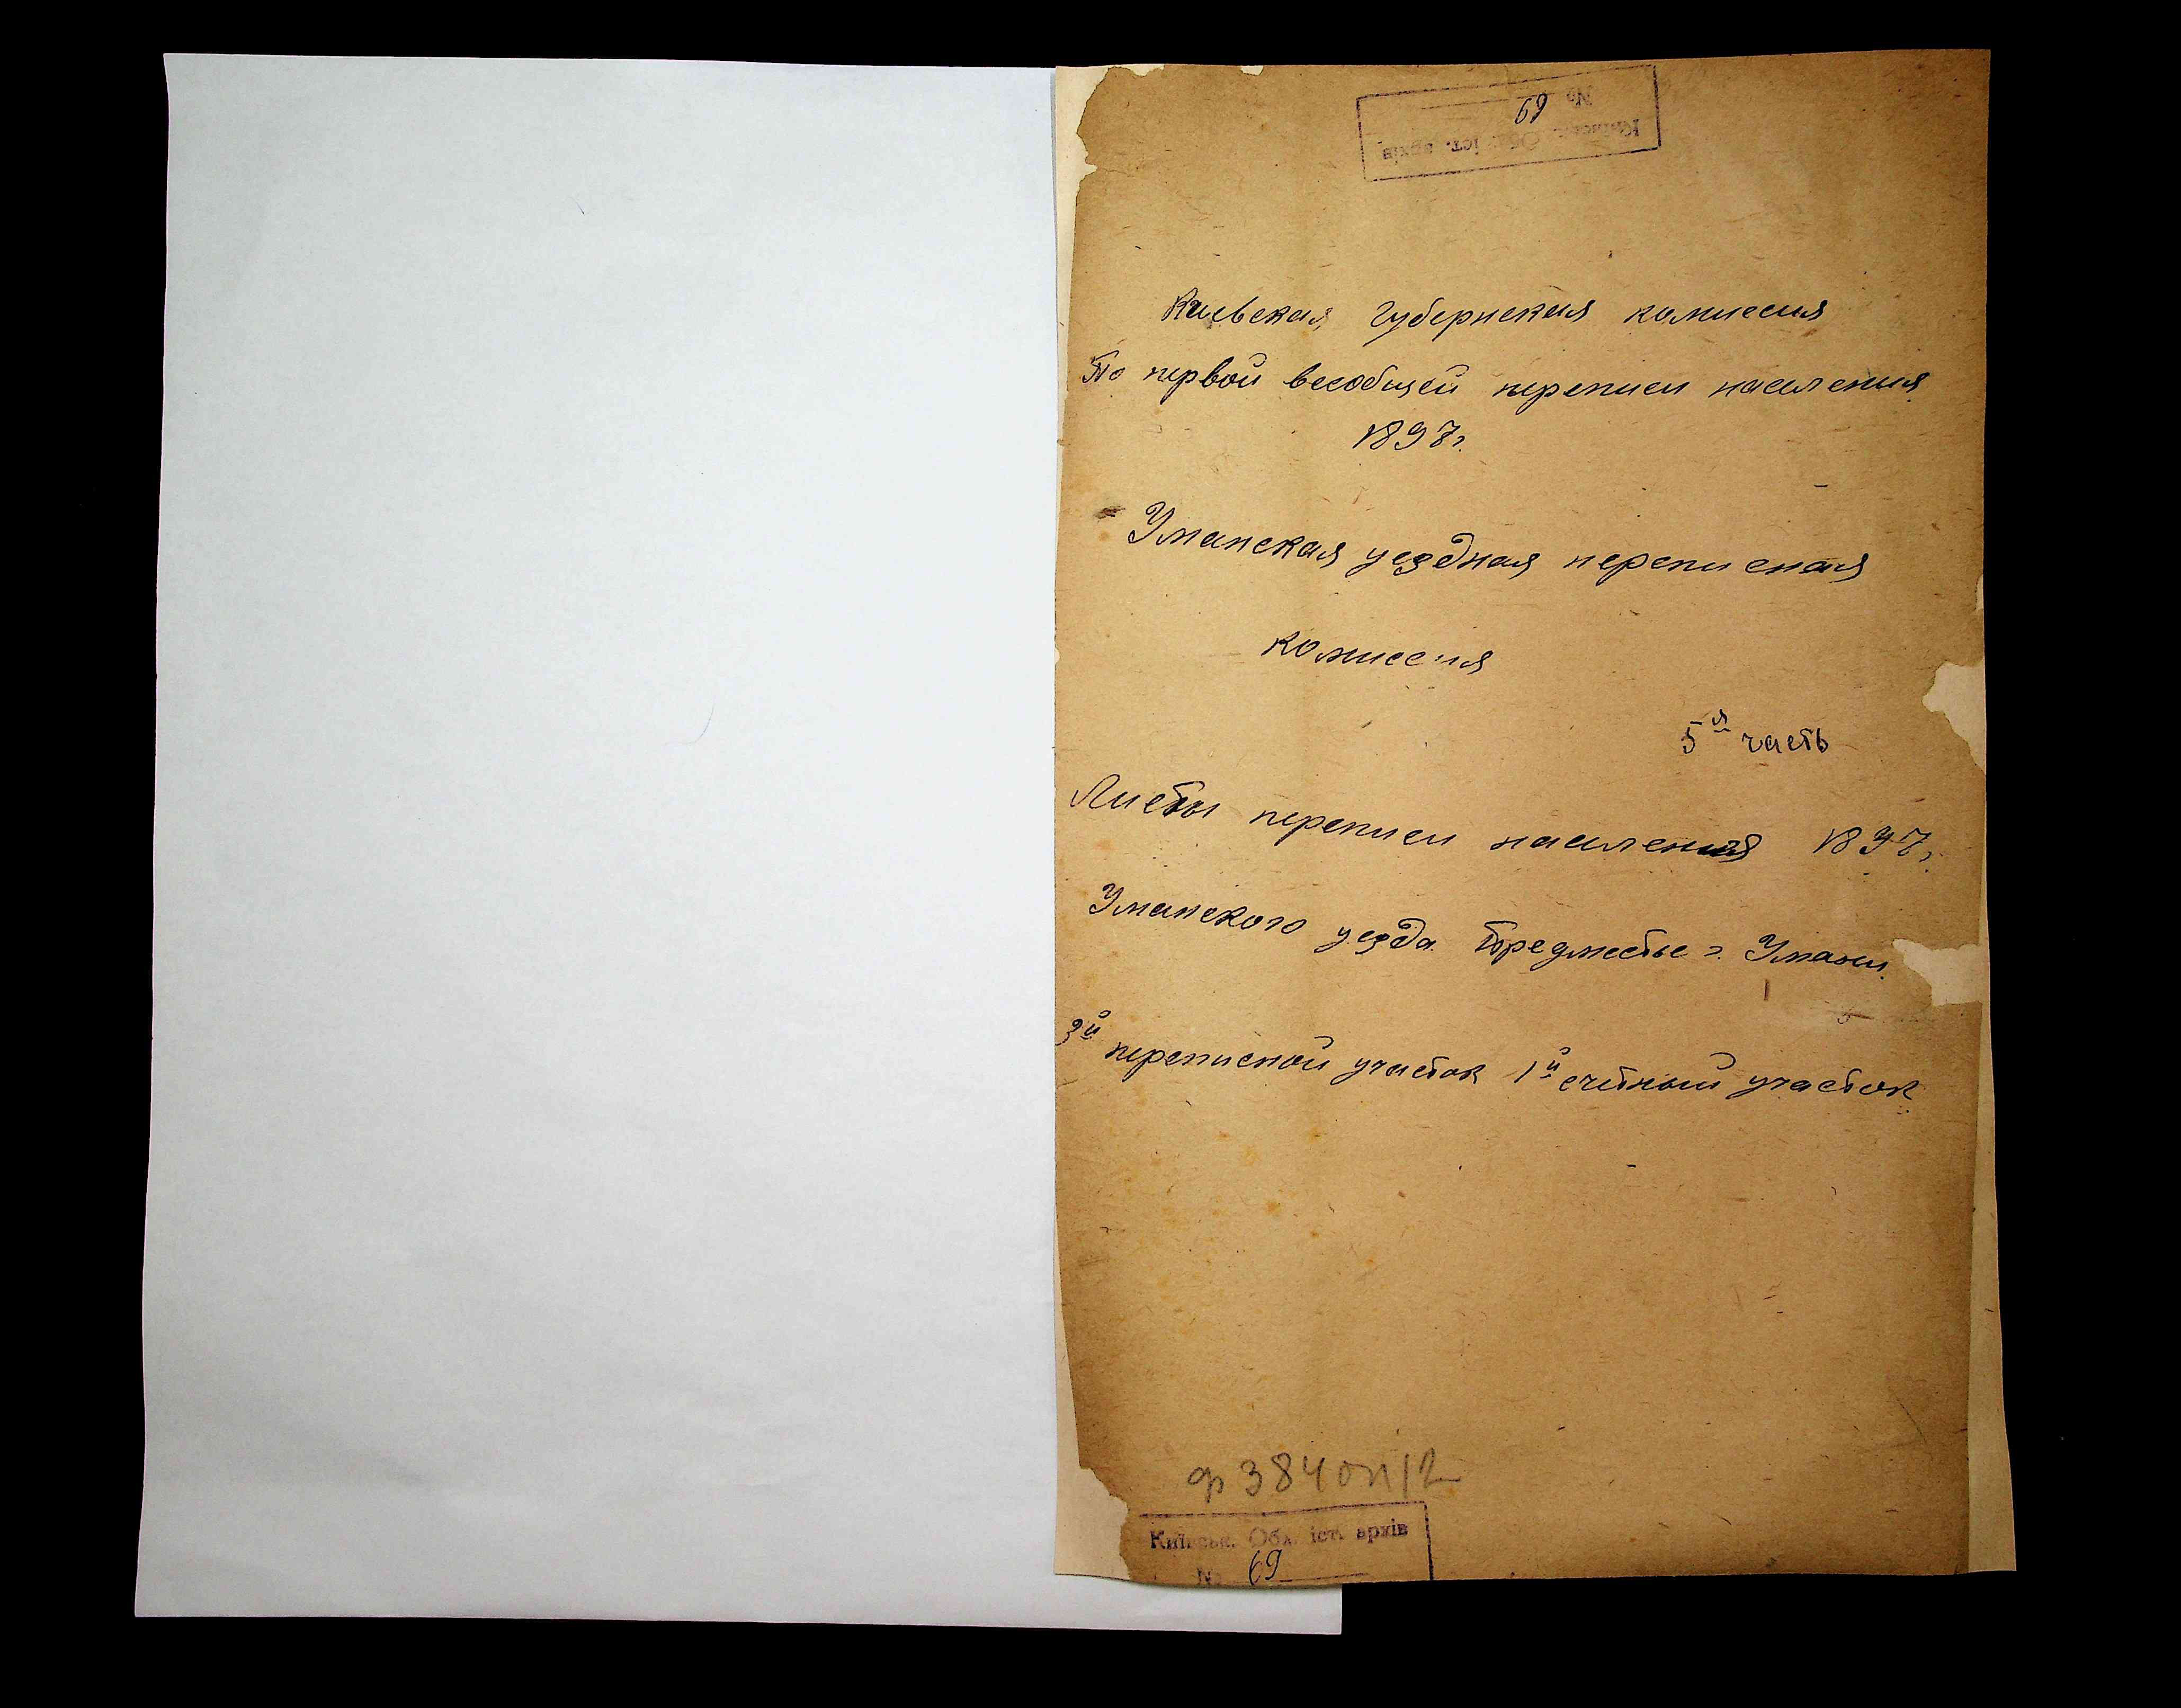 № 69
Київськ. Обл. іст. архів
Киевская губернская комиссия
По первой всеобщей переписи населения
1897г.
Уманская уездная переписная
комиссия
5я часть
Листы переписи населения 1897г.
Уманского уезда. Предместье г. Умани.
3й переписной участок 1й счетный участок
ф 384 оп 12
Київськ. Обл. іст. архів
№ 69